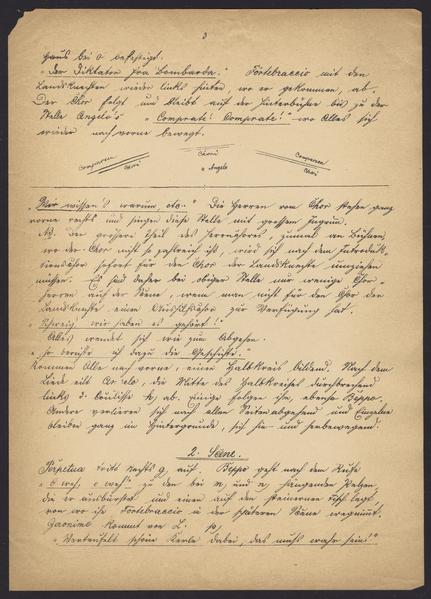 3
haus bei o befestigt.
"Der Diktator fra Bombarda." Fortebraccio mit den
Landsknechten wieder links hinten, wo er gekommen, ab.
Der Chor folgt und bleibt auf der Hinterbühne bis zu der
Stelle Angelo's "Comprate! Comprate!" wo Alles sich
wieder nach vorne bewegt.
Comparsen Chor Chor Angelo Comparsen Chor
"Wir wissen's warum, etc." Die Herren vom Chor stehen ganz
vorne rechts und singen diese Stelle mit grossem Ingrimm.
NB. Der grössere Theil des Herrenchores, zumal an Bühnen,
wo der Chor nicht so zahlreich ist, wird sich nach dem Introduk-
tionschor sofort für den Chor der Landsknechte umziehen
müssen. Es sind daher bei obiger Stelle nur wenige Chor-
herren auf der Scene, wenn man nicht für den Chor der
Landsknechte einen Aushilfschor zur Verfügung hat.
"Schweig, wir haben es gehört!"
Alles wendet sich wie zum Abgehen.
"So beruht auf dazu die Geschichte."
Kommen Alle nach vorne, einen Halbkreis bildend. Nach dem
Liede eilt die Mitte des Halbkreises durchbrechend
links 3. Coulisse ab, einige folgen ihm, ebenso Beppo.
Andere verlieren sich nach allen Seiten abgehend und Einzelne
bleiben ganz im Hintergrunde, sich hin- und herbewegend.
2. Scene.
Perpetua tritt rechts g, auf. Beppo geht nach dem Rufe
"O weh, o weh!" zu den bei m, und n, hängenden Pelzen,
die er ausbürstet und einen auf den steinernen Tisch legt,
von wo ihn Fortebraccio in der späteren Scene wegnimmt.
Geronimo kommt von L. p,
"Verteufelt schöne Kerle dabei, das muss wahr sein!"